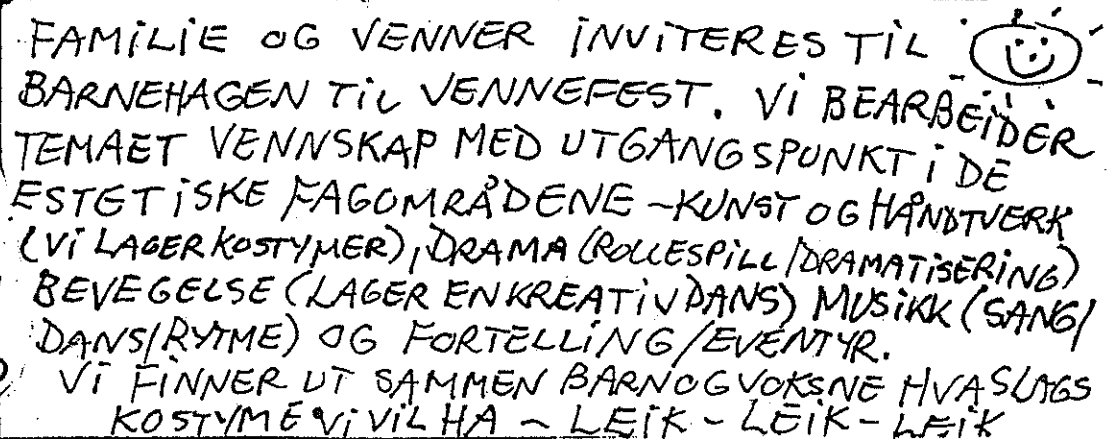 FAMILIE OG VENNER INVITERES TIL
BARNEHAGEN TIL VENNEFEST. VI BEARBEIDER
TEMAET VENNSKAP MED UTGANGSPUNKT I DE
ESTETISKE FAGOMRÅDENE - KUNST OG HÅNDTVERK
(VI LAGER KOSTYMER), DRAMA (ROLLESPILL/DRAMATISERING)
BEVEGELSE (LAGER EN KREATIV DANS) MUSIKK (SANG/
DANS/RYTME) OG FORTELLING/EVENTYR.
VI FINNER UT SAMMEN BARN OG VOKSNE HVA SLAGS
KOSTYME VI VIL HA - LEIK - LEIK - LEIK